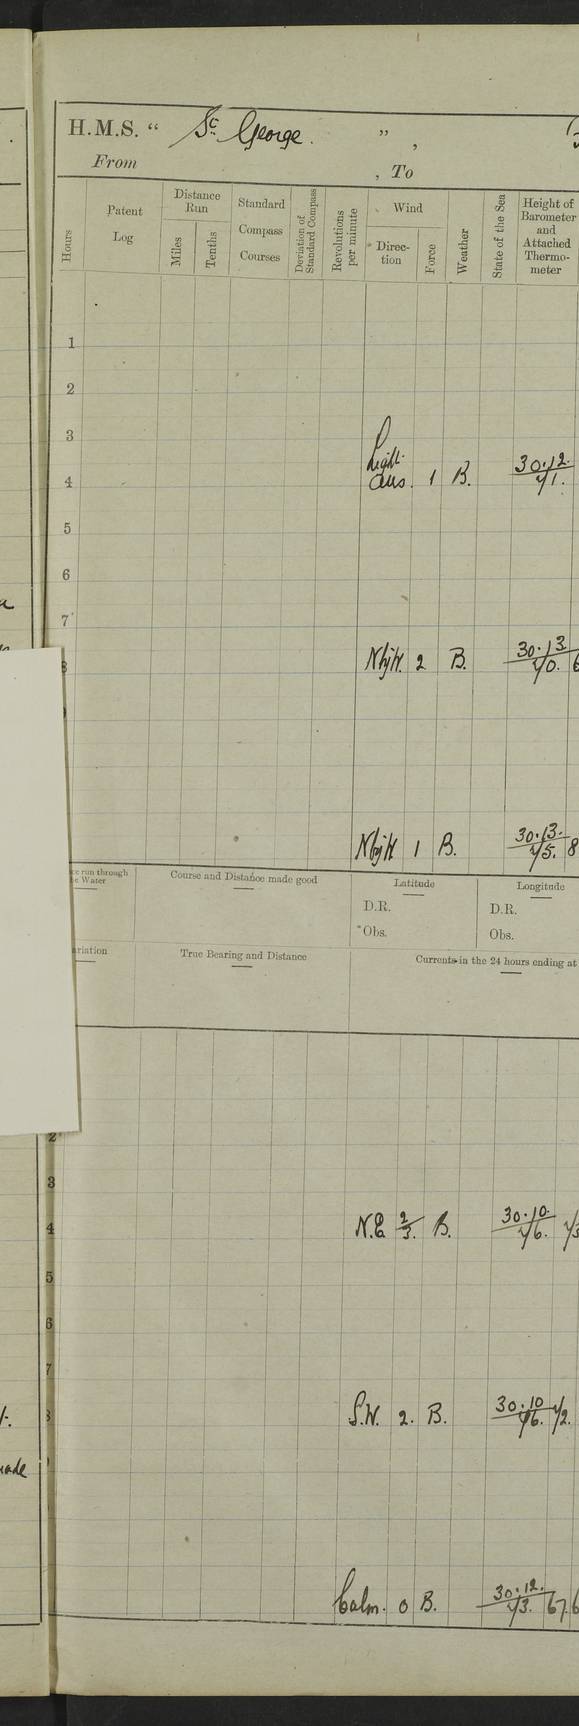 H.M.S. “ St. George. ” ,
From , To
Hours
Patent Log
Distance Run
Miles
Tenths
Standard Compass Courses
Deviation of Standard Compass
Revolutions per minute
Wind
Direction
Force
Weather
State of the Sea
Height of Barometer and Attached Thermometer
1
2
3
4 Light airs. 1 B. 30.12. 71.
5
6
7
8 NbyW. 2 B. 30.13. 70.
NbyW 1 B. 30.13. 75. 8
run through
Water
Course and Distance made good
Latitude
Longitude
D.R. D.R.
Obs. Obs.
ariation
True Bearing and Distance
Currents in the 24 hours ending at
2
3
4 N.E 2/3. B. 30.10. 76.
5
6
7
8 S.W. 2. B. 30.10 76. 72.
Calm. 0 B. 30.12. 73. 67.